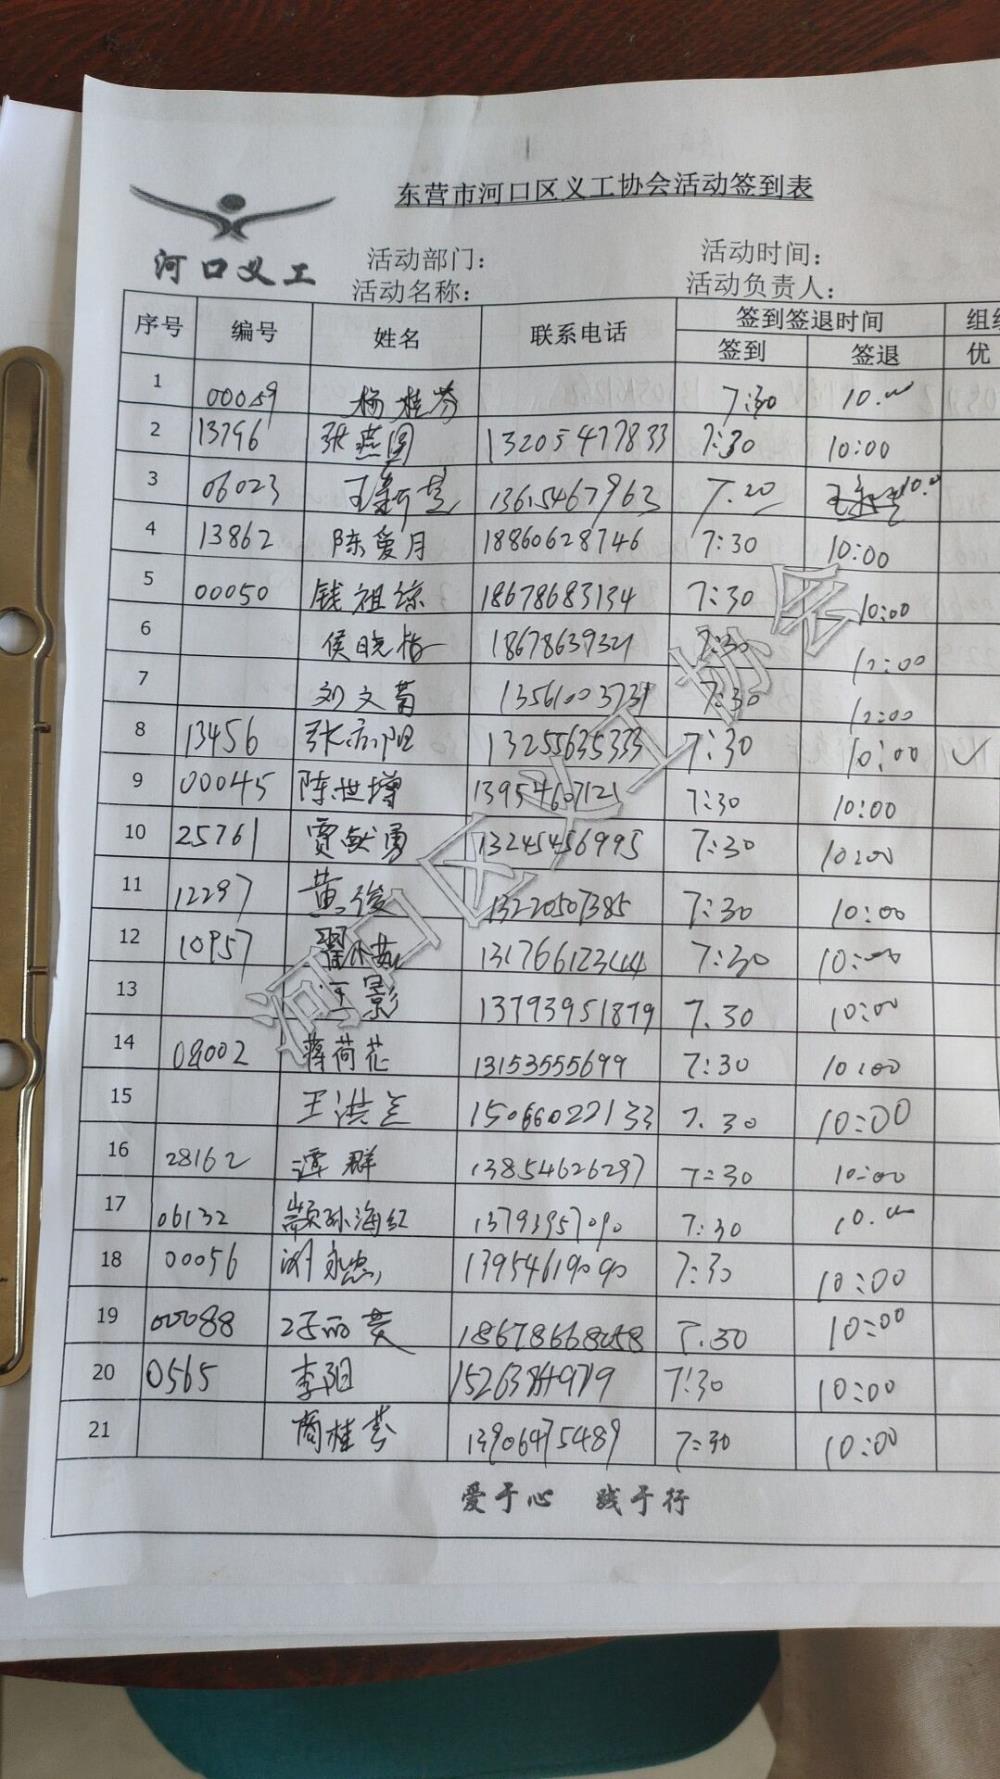 东营市河口区义工协会活动签到表
河口义工
活动部门： 活动时间：
活动名称： 活动负责人：
序号 编号 姓名 联系电话 签到签退时间 组织
签到 签退 优
1 00059 杨桂芬 7:30 10:00
2 13796 张燕图 13205477833 7:30 10:00
3 06023 13615467963 7.20 10:00
4 13862 陈爱月 18860628746 7:30 10:00
5 00050 钱祖琼 18678683134 7:30 10:00
6 侯晓梅 18678639321 7:30 12:00
7 刘文菊 13561003731 7:30 12:00
8 13456 张向阳 13255635333 7:30 10:00 ✓
9 00045 陈世增 13954607121 7:30 10:00
10 25761 贾献勇 13245456995 7:30 10:00
11 12297 黄俊 13220507385 7:30 10:00
12 10957 翟小茹 13176612344 7:30 10:00
13 丁影 13793951879 7.30 10:00
14 08002 蒋荷花 13153555699 7:30 10:00
15 王洪兰 15066022133 7.30 10:00
16 28162 谭群 13854626297 7:30 10:00
17 06132 颛孙海红 13793957090 7:30 10:00
18 00056 刘永忠 13954619090 7:30 10:00
19 00088 18678668058 7.30 10:00
20 0565 李阳 7:30 10:00
21 商桂芬 13906475489 7:30 10:00
爱于心 践于行
河口区义工协会